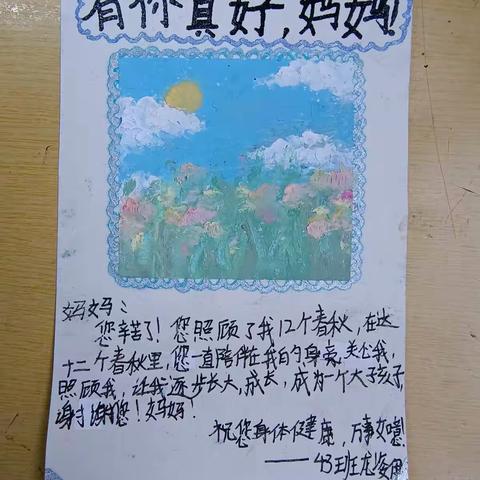 有你真好,妈妈!
妈妈:
您辛苦了!您照顾了我12个春秋,在这
十二个春秋里,您一直陪伴在我的身旁,关心我,
照顾我,让我逐步长大,成长,成为一个大孩子,
谢谢您!妈妈!
祝您身体健康,万事如意
——43班龙